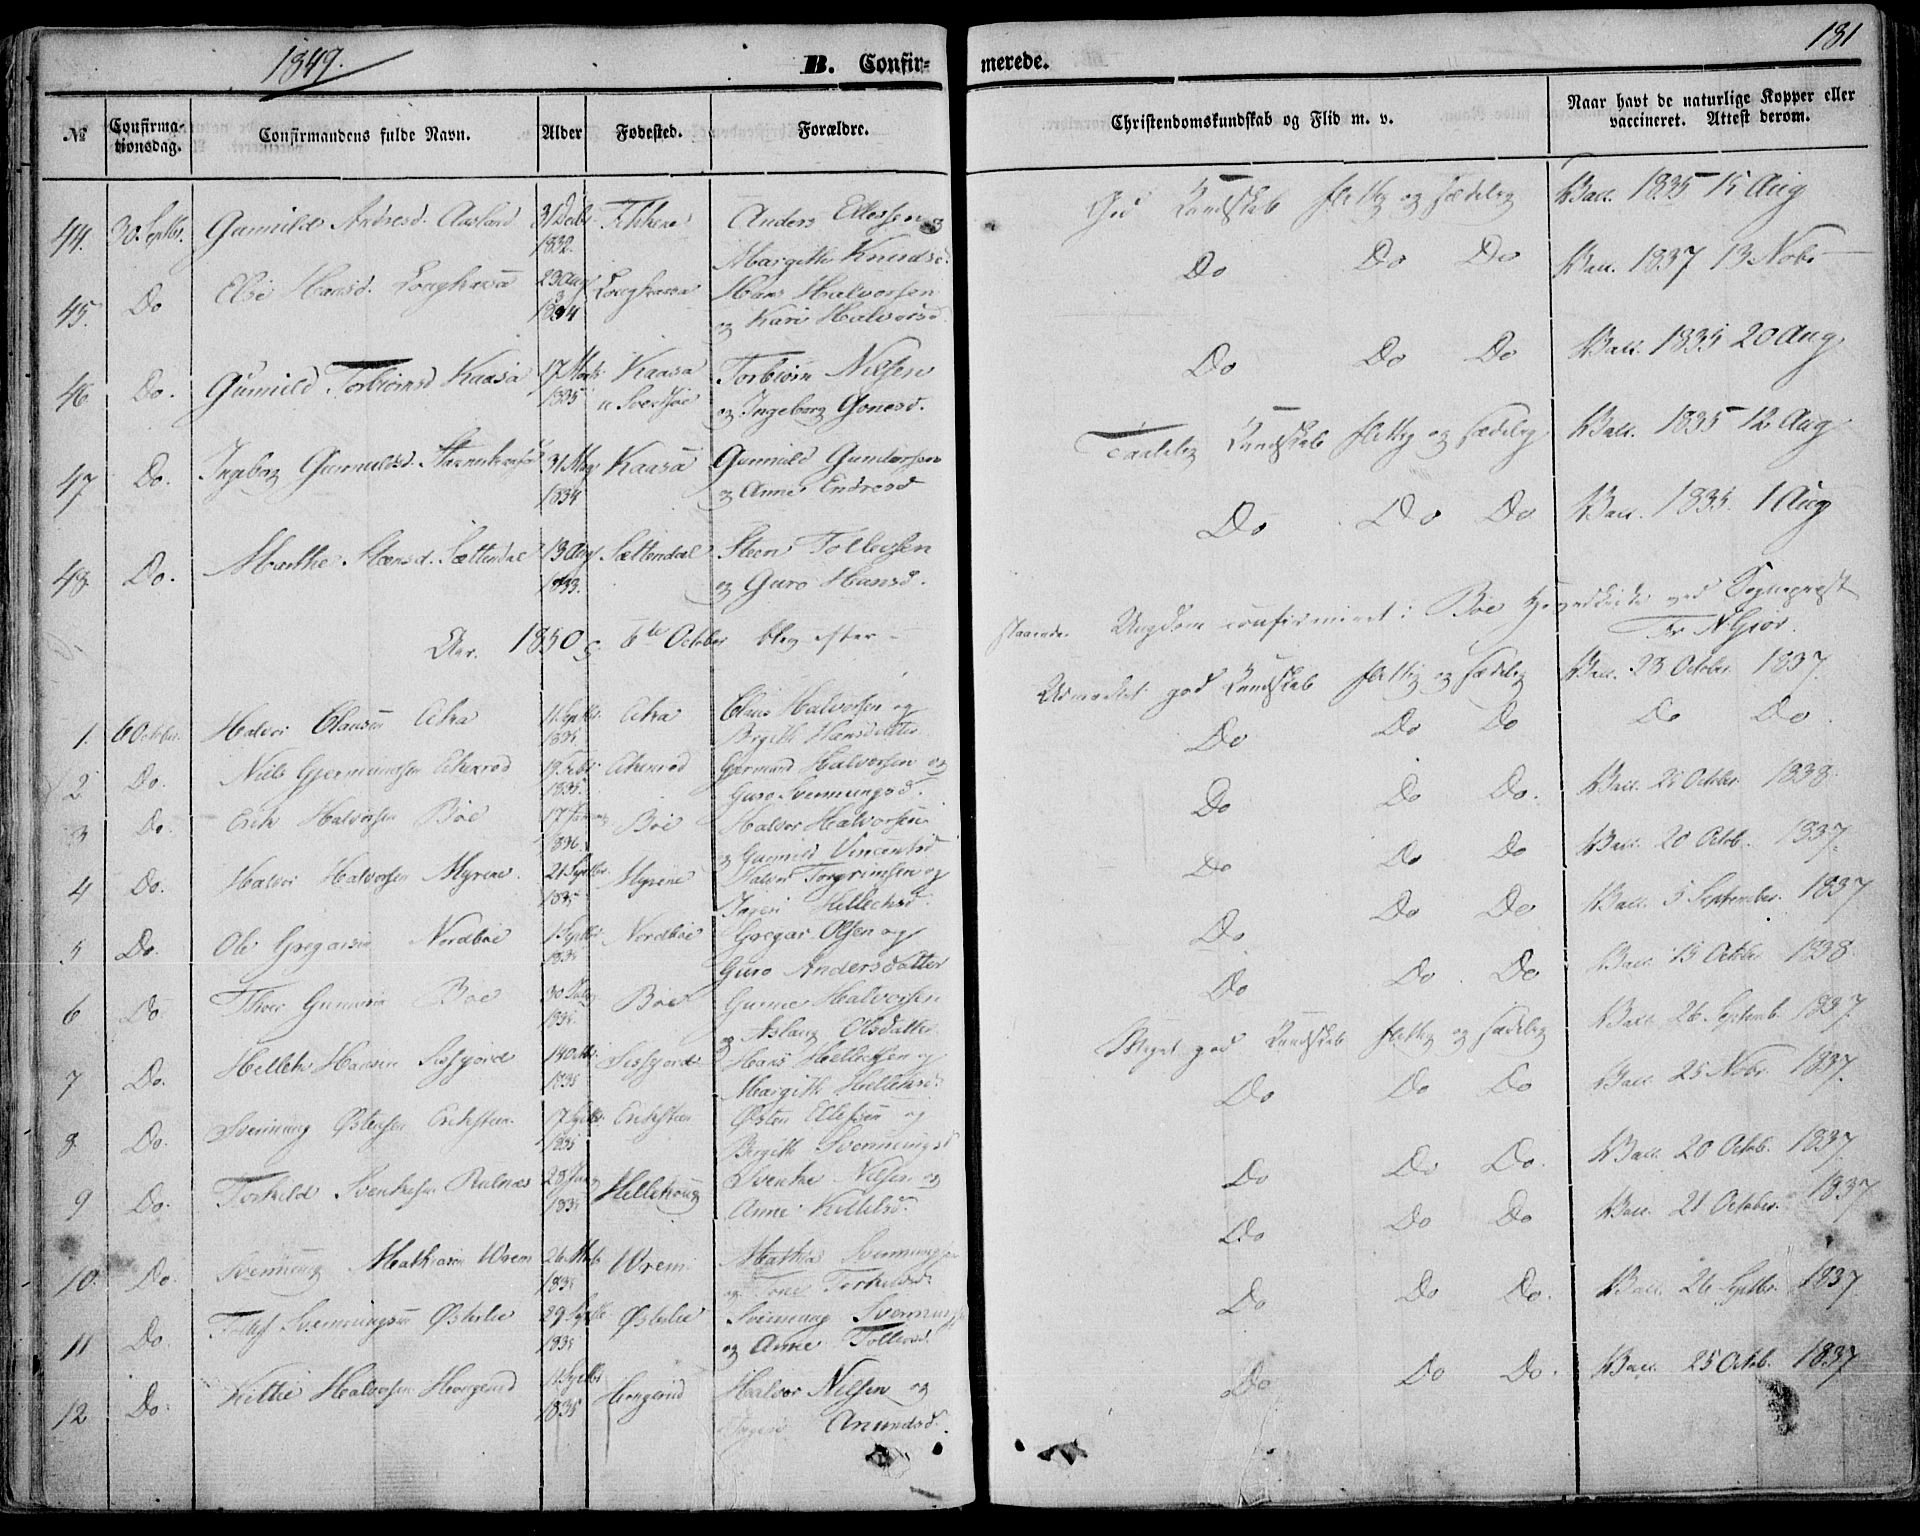 1849.
B. Confir-
merede.
181
No
Confirma-
tionsdag.
Confirmandens fulde Navn.
Alder
Fødested.
Forældre.
Christendomskundskab og Flid m. v.
Naar havt de naturlige Kopper eller
vaccineret. Attest derom.
44. 30. Septbr. Gunnild Andresd. Aasland 31 Debr. 1832. Anders Ellefsen og
Margethe Knudsd. God Kundskab flittig og sædelig Vacc. 1835 15 Aug
45. Do Else Hansd. 23 Aug 1834 Hans Halvorsen
og Kari Halvorsd. Do Do Do Vacc. 1837 13 Nobr
46 Do. Gunnild Torbiørnsd Kaasa 17 Marts 1835 Kaasa Torbiørn Nilsen
og Ingeborg Gonesd. Do Do Do Vacc. 1835 20 Aug
47 Do. Ingeborg Gunnuldsd. 31 May 1834 Kaasa Gunnuld Gundersen
og Anne Endresd Taalelig Kundskab flittig og sædelig Vacc. 1835 12 Aug
48 Do. Marthe Steensd. Sættendal 13 Aug 1833. Sættendal Steen Tollevsen
og Guro Hansd. Do Do Do Vacc. 1835. 1 Aug
Aar. 1850 6te October blev efter-
staaende Ungdom confirmeret i Bøe Hovedkirke ved Sognepræst
Fr N Giør.
1. 6 October. Halvor Clausen Akra 11. Septbr. 1835 Akra Claus Halvorsen og
Birgith Hansdatter Udmærket god Kundskab flittig og sædelig Vacc. 23 October 1837.
2 Do. Niels Gjermundsen Akerød 19. Febr. 1835. Akerød Gjermund Halvorsen og
Guro Svenningsd. Do Do Do Do Do.
3 Do. Erik Halvorsen Bøe 17 1836. Bøe Halvor Halvorsen
og Gunnild Vincentsd Do Do Do. Vacc. 25 October 1838.
4 Do. Halvor Halvorsen Myrene. 21 Septbr. 1835 Myrene Halvor Torgrimsen og
Ingeri Hellechsd. Do Do Do Vacc. 20 Octob. 1837.
5 Do. Ole Gregarsen Nordbøe 1. Septbr. 1835 Nordbøe Gregar Olsen og
Guro Andersdatter Do Do Do Vacc. 5 September. 1837
6 Do Thor Gunnersen Bøe 30 1835. Bøe Gunne Halvorsen
og Aslaug Olsdatter Do Do Do Vacc. 15 October 1838.
7 Do. Hellek Hansen Sisjord 14 Octbr. 1835 Sisjord Hans Hellecksen og
Margith Helleksd. Meget god Kundskab flittig og sædelig Vacc. 26 Septemb. 1837.
8 Do. Svenning Østensen Erikstein. 17 Septbr. 1835 Erikstein Østen Ellefsen og
Birgith Svenningsd Do Do Do Vacc. 25 Nobr. 1837.
9 Do. Torkild Svenkesen 28 1835 Hellekaas Svenke Nilsen og
Anne Kittelsd. Do Do Do. Vacc. 20 Octob. 1837.
10. Do. Svenning Mathisen Wrem 26. 1835 Wrem Mathis Svenningsen
og Tone Torkildsd. Do Do Do Vacc. 21 October. 1837
11 Do. Tollef Svenningsen Østerlie 29. Septbr. 1835 Østerlie Svenning Svenningsen
og Anne Tollevsd. Do Do Do. Vacc. 26 Septbr. 1837.
12 Do. Kittil Halvorsen Haugerud 11. Septbr. 1835 Haugerud Halvor Nilsen og
Ingeri Amundsd. Do Do Do. Vacc. 25 Octob. 1837